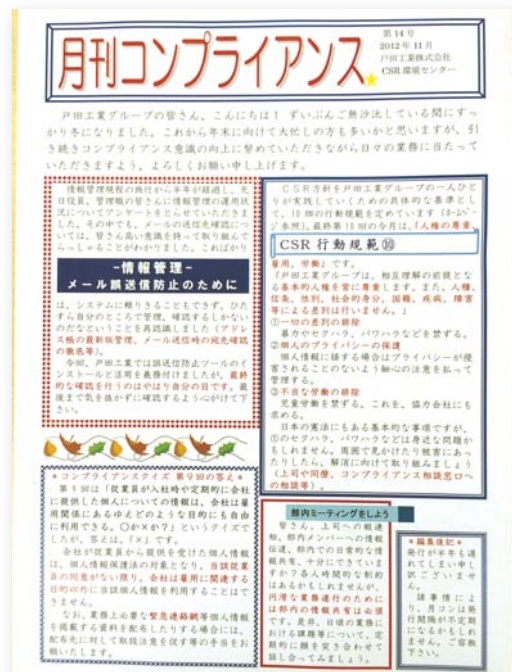 月刊コンプライアンス
第14号
2012年11月
戸田工業株式会社
CSR環境センター
戸田工業グループの皆さん、こんにちは！ ずいぶんご無沙汰している間にすっ
かり冬になりました。これから年末に向けて大忙しの方も多いかと思いますが、引
き続きコンプライアンス意識の向上に努めていただきながら日々の業務に当たって
いただきますよう、よろしくお願い申し上げます。
情報管理規程の施行から半年が経過し、先
日役員、管理職の皆さんに情報管理の運用状
況についてアンケートをとらせていただきま
した。その中でも、メールの送信先確認につ
いては、皆さん高い意識を持って取り組んで
らっしゃることがわかりました。こればかり
-情報管理-
メール誤送信防止のために
は、システムに頼りきることもできず、ひた
すら自分のところで管理、確認するしかない
のだなということを再認識しました（アドレ
ス帳の最新版管理、メール送信時の宛先確認
の徹底等）。
今回、戸田工業では誤送信防止ツールのイ
ンストールと活用を義務付けましたが、最終
的な確認を行うのはやはり自分の目です。最
後まで気を抜かずに確認するよう心がけて下
さい。
＊コンプライアンスクイズ 第9回の答え＊
第9回は「従業員が入社時や定期的に会社
に提供した個人についての情報は、会社は雇
用関係にあるゆえどのような目的にも自由
に利用できる。〇か×か？」というクイズで
したが、答えは、「×」です。
会社が従業員から提供を受けた個人情報
は、個人情報保護法の対象となり、当該従業
員の同意がない限り、会社は雇用に関連する
目的以外に当該個人情報を利用することはで
きません。
なお、業務上必要な緊急連絡網等個人情報
を掲載する資料を配布したりする場合には、
配布先に対して取扱注意を促す等の手当をお
願いします。
CSR方針を戸田工業グループの一人ひと
りが実践していくための具体的な基準とし
て、10個の行動規範を定めています（ホームペー
ジ参照）。最終第10回の今月は、「人権の尊重、
CSR行動規範⑩
雇用、労働」です。
「戸田工業グループは、相互理解の前提とな
る基本的人権を常に尊重します。また、人種、
信条、性別、社会的身分、国籍、疾病、障害
等による差別は行いません。」
①一切の差別の排除
暴力やセクハラ、パワハラなどを禁ずる。
②個人のプライバシーの保護
個人情報に関する場合はプライバシーが侵
害されることのないよう細心の注意を払って
管理する。
③不当な労働の排除
児童労働を禁ずる。これを、協力会社にも
求める。
日本の憲法にもある基本的な事項ですが、
①のセクハラ、パワハラなどは身近な問題か
もしれません。周囲で見かけたり被害にあっ
たりしたら、解消に向けて取り組みましょう
（上司や同僚、コンプライアンス相談窓口へ
の相談等）。
部内ミーティングをしよう
皆さん、上司への報連
相、部内メンバーへの情報
伝達、部内での日常的な情
報共有、十分にできていま
すか？各人時間的な制約
はあるかもしれませんが、
円滑な業務遂行のために
は部内の情報共有は必須
です。是非、日頃の業務に
おける課題等について、定
期的に顔を突き合わせて
話し合ってみましょう。
＊編集後記＊
発行が半年も遅
れてしまい申し
訳ございませ
ん。
諸事情によ
り、月コンは発
行間隔が不定期
になるかもしれ
ません。ご容赦
下さい。